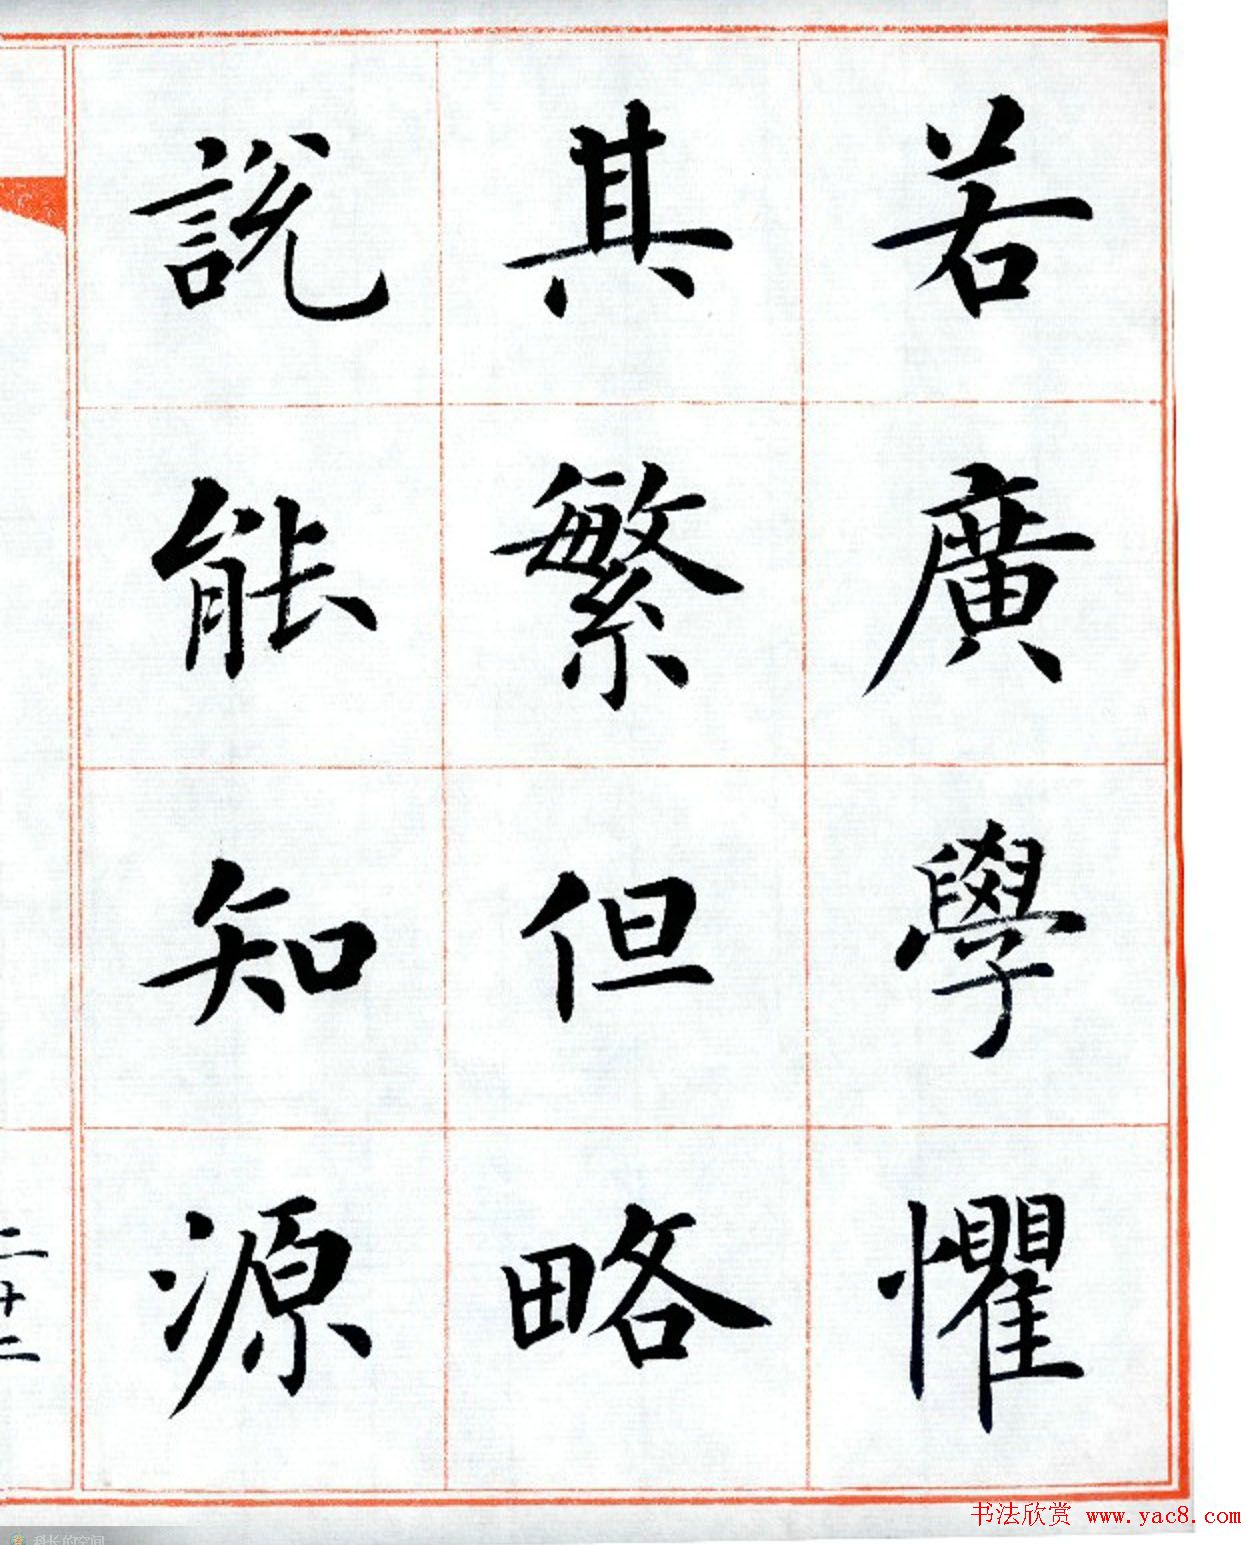 若廣學懼
其繁但略
說能知源
二十二
书法欣赏 www.yac8.com
科长的空间